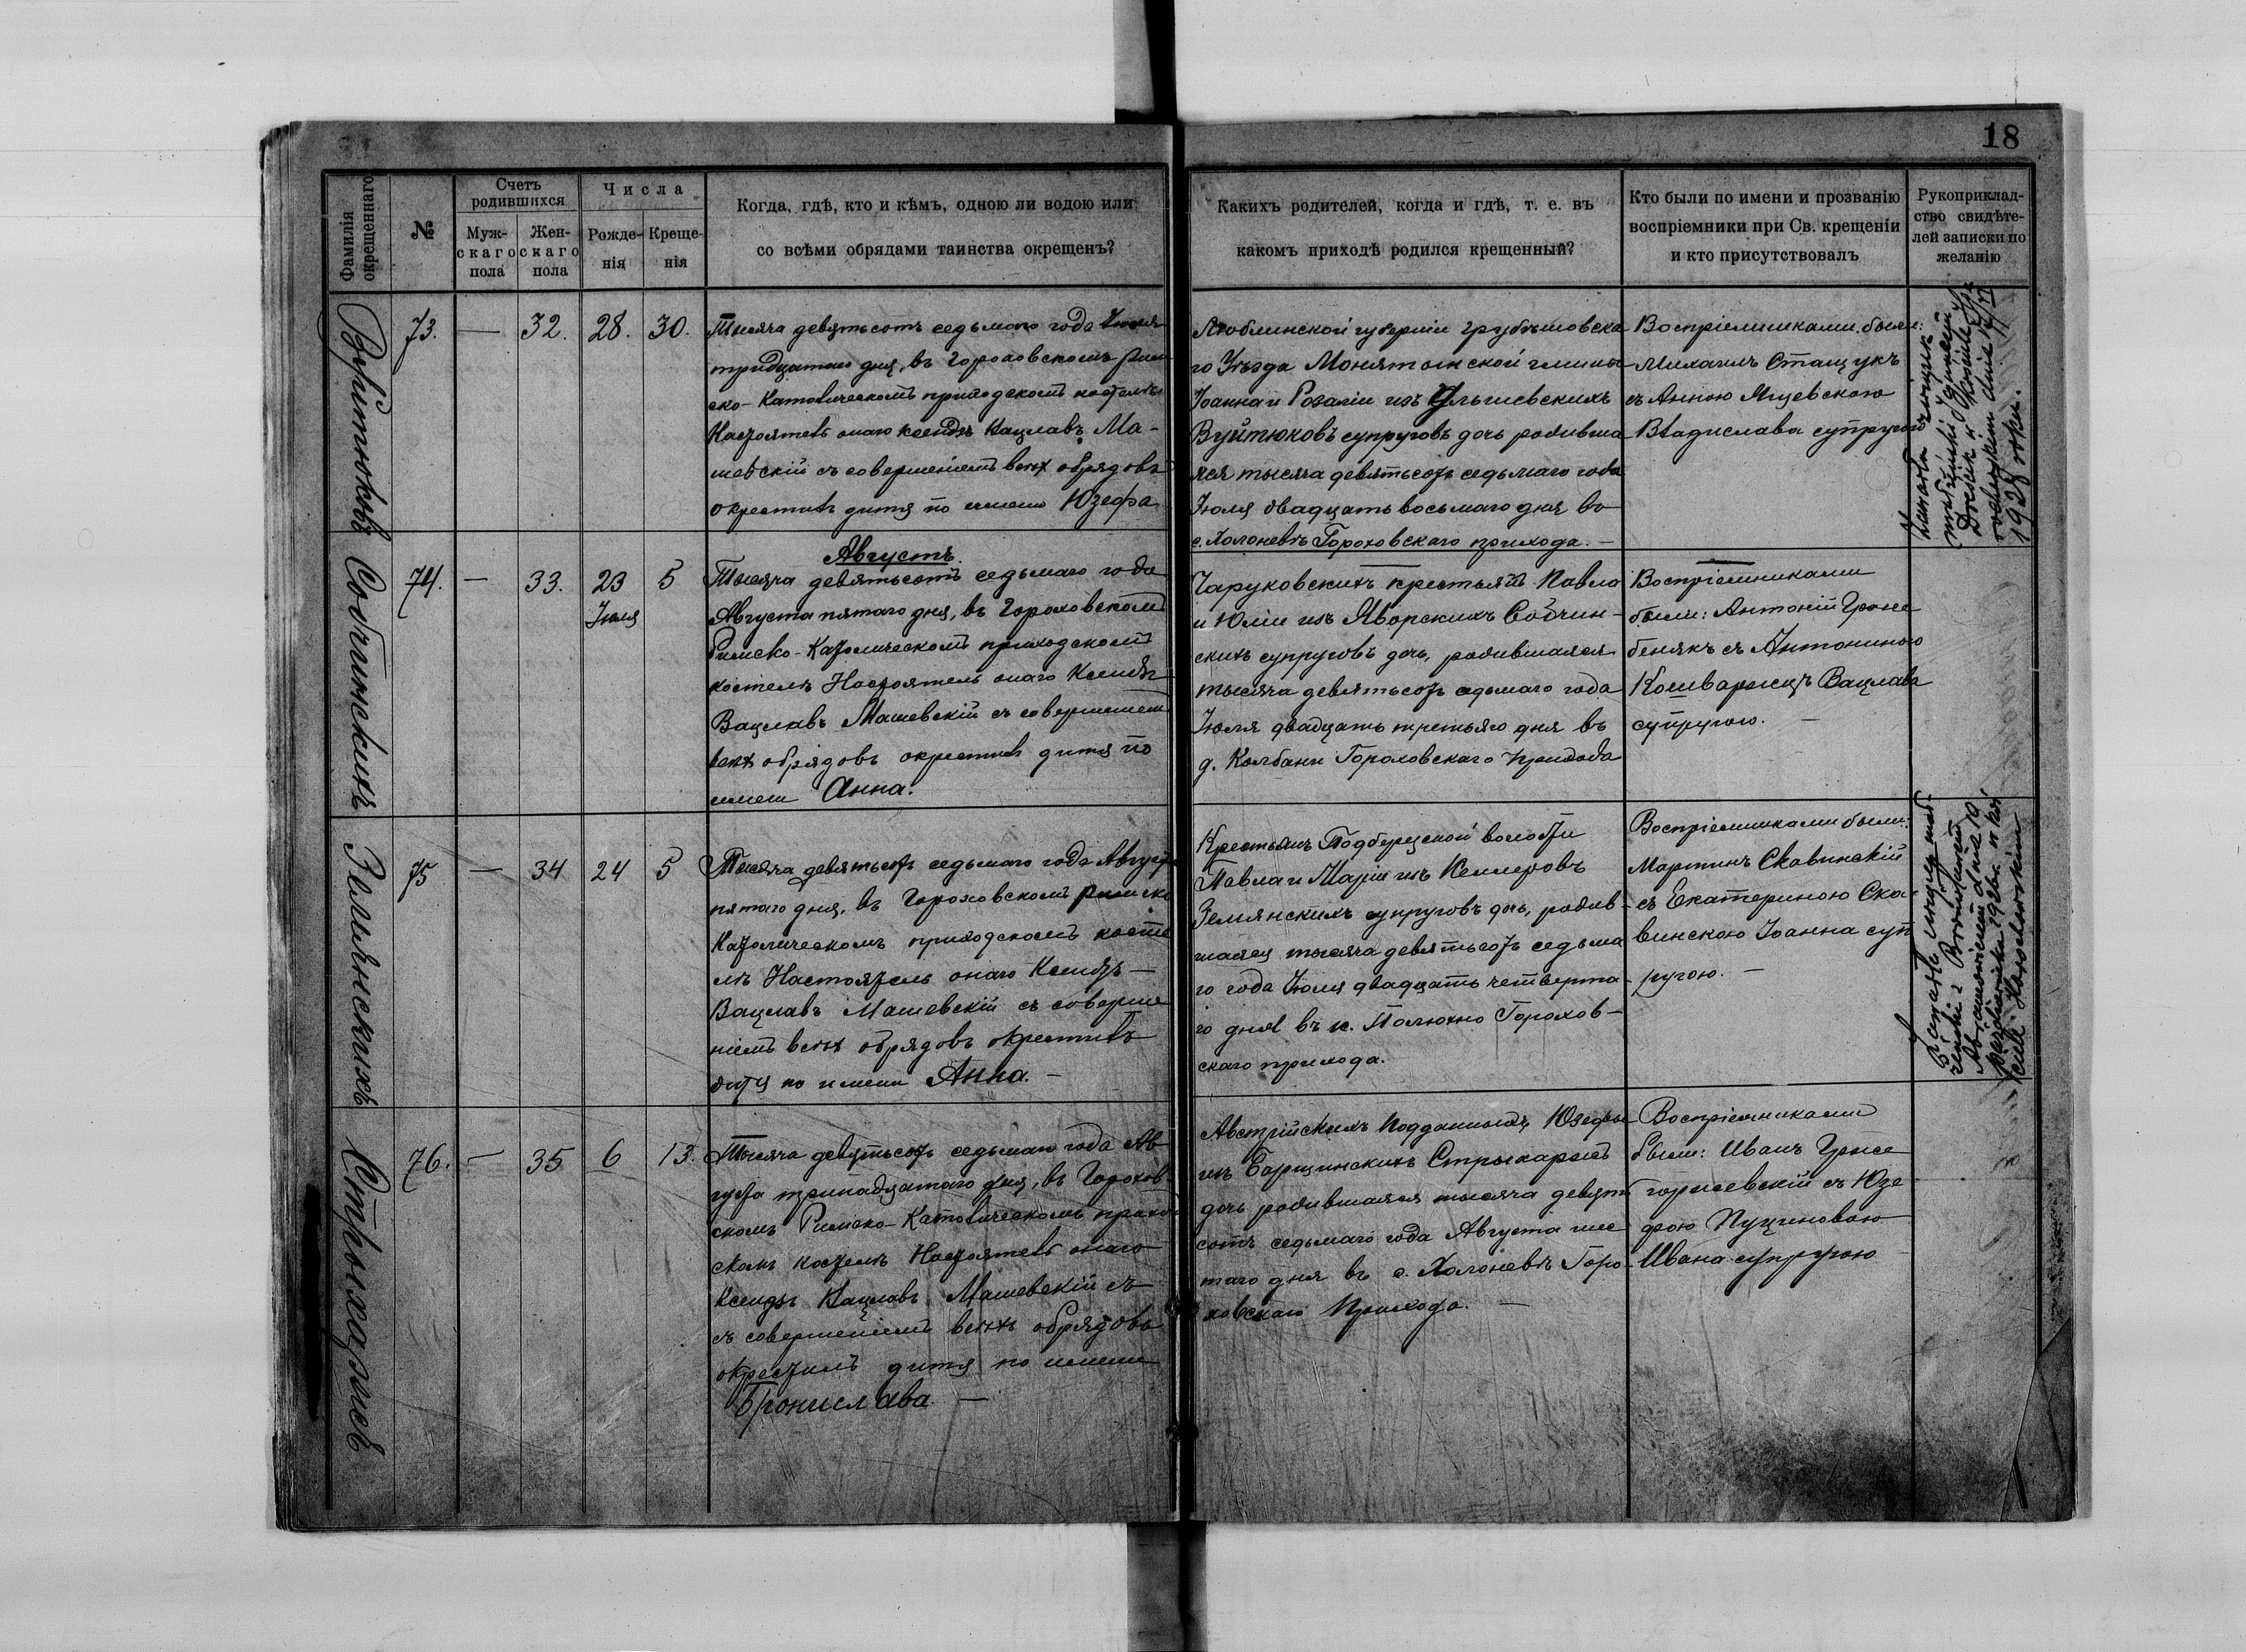 18
Фамилія окрещеннаго
№
Счетъ родившихся
Мужскаго пола
Женскаго пола
Числа
Рожденія
Крещенія
Когда, гдѣ, кто и кѣмъ, одною ли водою или
со всѣми обрядами таинства окрещенъ?
Какихъ родителей, когда и гдѣ, т. е. въ
какомъ приходѣ родился крещенный?
Кто были по имени и прозванію
воспріемники при Св. крещеніи
и кто присутствовалъ
Рукоприклад-
ство свидѣте-
лей записки по
желанію
Вуйтюковъ
73. — 32. 28. 30.
Тысяча девятьсотъ седьмого года Июля
тридцатаго дня, въ Гороховскомъ Рим
ско-Католическомъ приходскомъ костелѣ
Настоятель онаго Ксендзъ Вацлавъ Ма-
шевскій съ совершеніемъ всѣхъ обрядовъ
окрестилъ дитя по имени Юзефа
Люблинской губерніи Грубешовска
го Уѣзда Монятынской гмины
Іоанна и Розаліи изъ Ульшевскихъ
Вуйтюковъ супруговъ дочь родивша
яся тысяча девятьсотъ седьмаго года
Іюля двадцать восьмаго дня въ
с. Холоневѣ Гороховскаго прихода. —
Воспріемниками были:
Михаилъ Стащукъ
съ Анною
Владислава супругою
1928 roku.
Собчинскихъ
74. — 33. 23 Іюля 5
Августъ.
Тысяча девятьсотъ седьмаго года
Августа пятаго дня, въ Гороховскомъ
Римско-Католическомъ приходскомъ
костелѣ Настоятель онаго Ксендзъ
Вацлавъ Машевскій съ совершеніемъ
всѣхъ обрядовъ окрестилъ дитя по
имени Анна.
Чаруковскихъ крестьянъ Павла
и Юліи изъ Яворскихъ Собчин-
скихъ супруговъ дочь, родившаяся
тысяча девятьсотъ седьмаго года
Іюля двадцать третьяго дня въ
д. Колбани Гороховскаго прихода
Воспріемниками
были: Антоній Гроне
бенякъ съ Антониною
Вацлава
супругою. —
Землянскихъ
75 — 34 24 5
Тысяча девятьсотъ седьмаго года Августа
пятаго дня, въ Гороховскомъ Римско
Католическомъ приходскомъ косте
лѣ Настоятель онаго Ксендзъ —
Вацлавъ Машевскій съ соверше
ніемъ всѣхъ обрядовъ окрестилъ
дитя по имени Анна. —
Крестьянъ Подберезской волости
Павла и Маріи изъ Келлеровъ
Землянскихъ супруговъ дочь, родив-
шаяся тысяча девятьсотъ седьма
го года Іюля двадцать четверта-
го дня въ к. Полюхно Горохов-
скаго прихода.
Воспріемниками были:
Мартинъ Скавинскій
съ Екатериною Ска-
винскою Іоанна суп
ругою. —
Стрыхарпевъ
76. — 35 6 13.
Тысяча девятьсотъ седьмаго года Ав
густа тринадцатаго дня, въ Горохов
скомъ Римско-Католическомъ приход
скомъ костелѣ Настоятель онаго
Ксендзъ Вацлавъ Машевскій съ
съ совершеніемъ всѣхъ обрядовъ
окрестилъ дитя по имени
Бронислава —
Австрійскихъ подданныхъ Юзефы
изъ Барщинскихъ
дочь родившаяся тысяча девять
сотъ седьмаго года Августа шес
таго дня въ с. Холоневѣ Горо-
ховскаго Прихода. —
Воспріемниками
были: Иванъ Гржe
горжевскій съ Юзе
фою
Ивана супругою